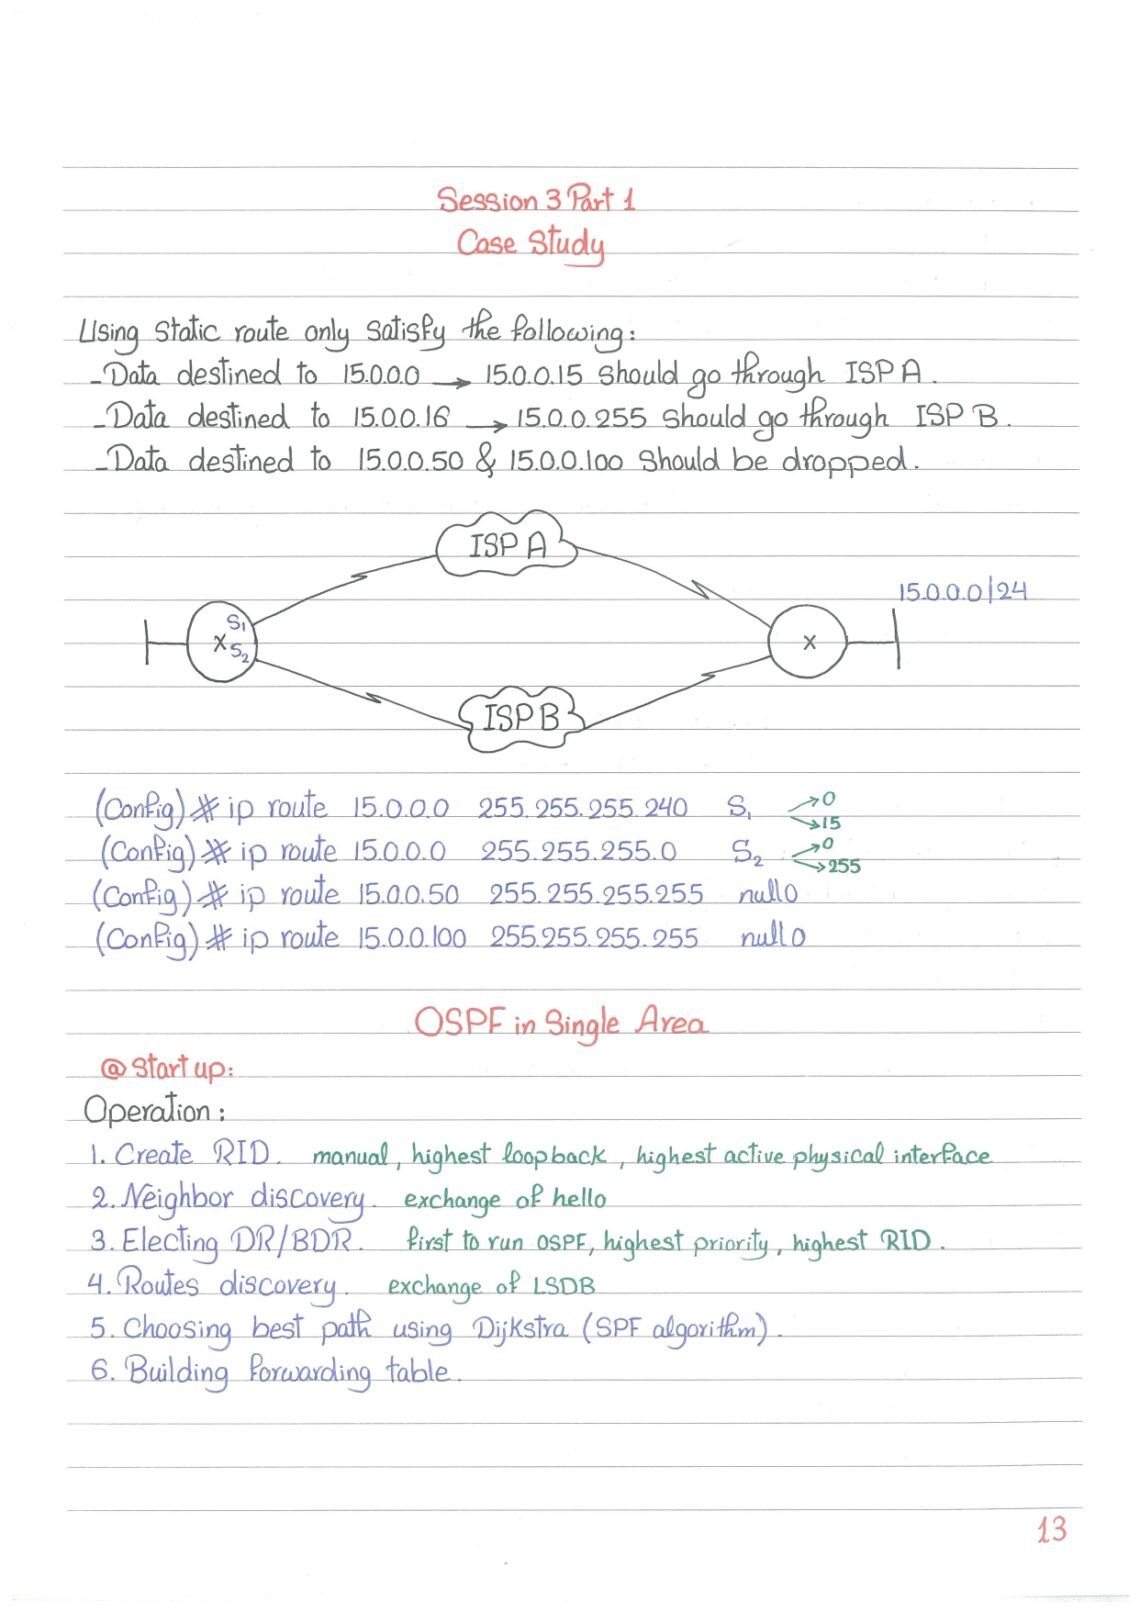 Session 3 Part 1
Case Study
Using static route only satisfy the following:
-Data destined to 15.0.0.0 → 15.0.0.15 should go through ISP A.
-Data destined to 15.0.0.16 → 15.0.0.255 should go through ISP B.
-Data destined to 15.0.0.50 & 15.0.0.100 should be dropped.
ISP A
15.0.0.0/24
S1
X
S2
X
ISP B
(Config)# ip route 15.0.0.0 255.255.255.240 S1 → 0
→ 15
(Config)# ip route 15.0.0.0 255.255.255.0 S2 → 0
→ 255
(Config)# ip route 15.0.0.50 255.255.255.255 null0
(Config)# ip route 15.0.0.100 255.255.255.255 null0
OSPF in Single Area
@ start up:
Operation:
1. Create RID. manual, highest loopback, highest active physical interface
2. Neighbor discovery. exchange of hello
3. Electing DR/BDR. first to run OSPF, highest priority, highest RID.
4. Routes discovery. exchange of LSDB
5. Choosing best path using Dijkstra (SPF algorithm).
6. Building forwarding table.
13